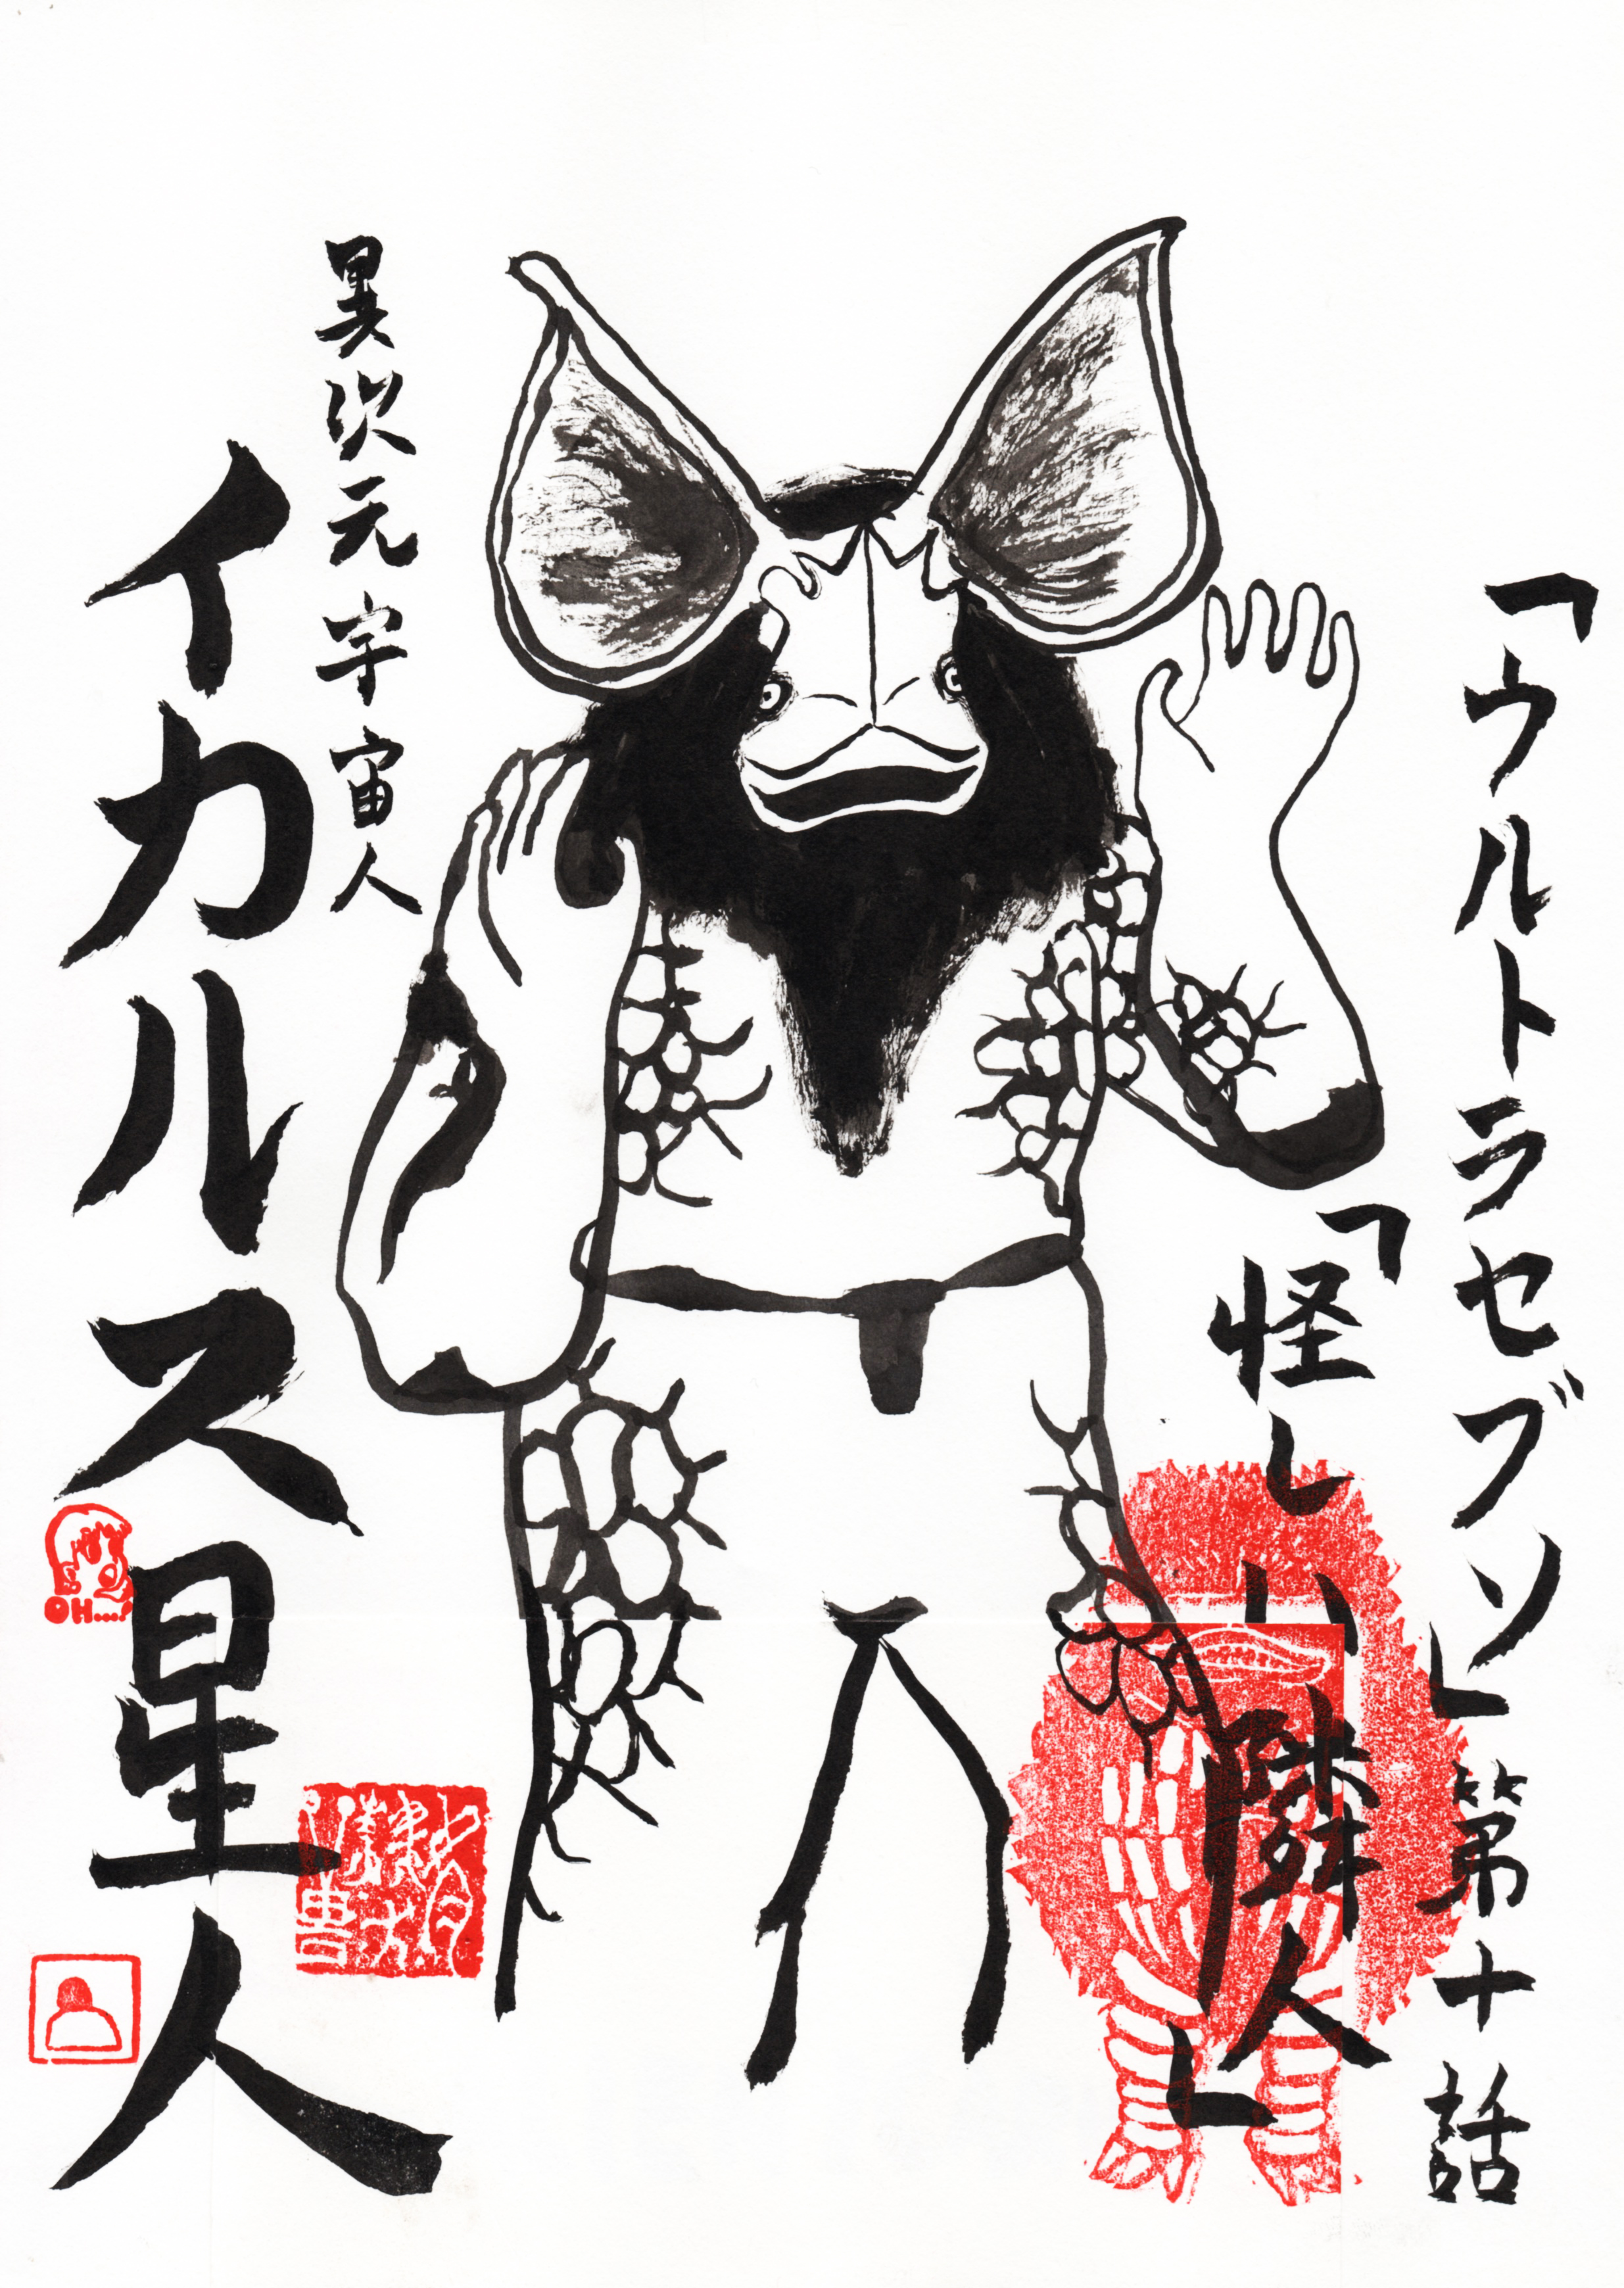 「ウルトラセブン」第十話
「怪しい隣人」
異次元宇宙人
イカルス星人
OH....!